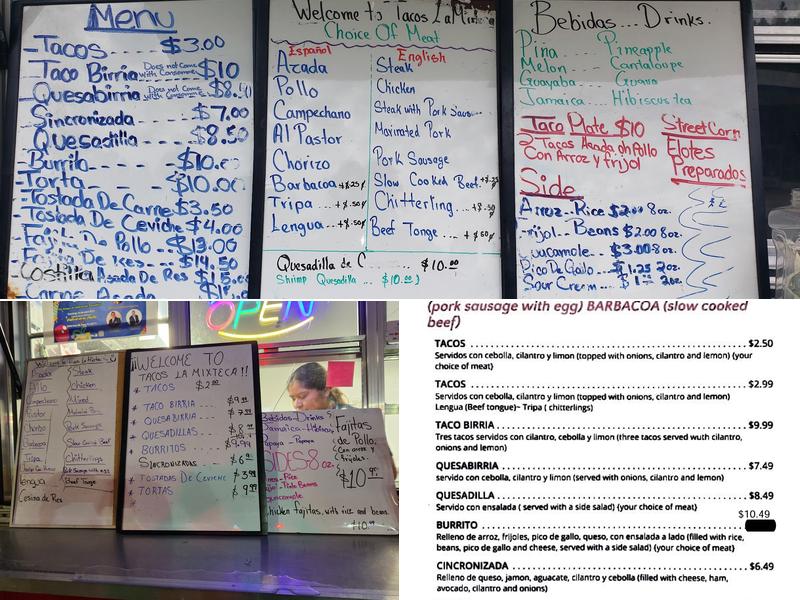 Menu
Tacos $3.00
Taco Birria Does not come with Consomme $10
Quesabirria Does not come with Consomme $8.50
Sincronizada $7.00
Quesadilla $8.50
Burrito $10.00
Torta $10.00
Tostada De Carne $3.50
Tostada De Ceviche $4.00
De Pollo $13.00
De Res $14.50
Costilla Asada De Res
Carne Asada
Welcome to Tacos La
Choice Of Meat
Español English
Azada Steak
Pollo Chicken
Campechano Steak with Pork
Al Pastor Marinated Pork
Chorizo Pork Sausage
Barbacoa +$.25¢ Slow Cooked Beef
Tripa +.50¢ Chitterling
Lengua +.50¢ Beef Tonge +.50¢
Quesadilla de C $10.00
Shrimp Quesadilla $10.00
Bebidas...Drinks.
Pina Pineapple
Melon Cantaloupe
Guayaba Guava
Jamaica Hibiscus tea
Taco Plate $10
2 Tacos Asada oh Pollo
Con Arroz y frijol
Street Corn
Elotes
Preparados
Side
Arroz Rice $2.00 8oz.
Beans $2.00 8oz.
$3.00 8oz.
Pico De Gallo $1.25 2oz.
Sour Cream 2oz.
OPEN
Steak
Pollo Chicken
Pastor
Chorizo Pork Sausage
Barbacoa Slow Cooked Beef
Tripa Chitterlings
Lengua Beef Tonge
Cesina de Res
¡¡WELCOME TO
TACOS LA MIXTECA!!
* TACOS
* TACO BIRRIA
* QUESABIRRIA
* QUESADILLAS
* BURRITOS $9.99
SINCRONIZADAS
* TOSTADAS DE CEVICHE
* TORTAS
Bebidas-Drinks
Jamaica-
Papaya - Papaya
SIDES 8 oz.
Fajitas
de Pollo.
Con arroz y
frijoles.
Chicken fajitas, with rice and beans.
(pork sausage with egg) BARBACOA (slow cooked
beef)
TACOS $2.50
Servidos con cebolla, cilantro y limon (topped with onions, cilantro and lemon) (your
choice of meat)
TACOS $2.99
Servidos con cebolla, cilantro y limon (topped with onions, cilantro and lemon)
Lengua (Beef tongue)- Tripa ( chitterlings)
TACO BIRRIA $9.99
Tres tacos servidos con cilantro, cebolla y limon (three tacos served wuth cilantro,
onions and lemon)
QUESABIRRIA $7.49
servido con cebolla, cilantro y limon (served with onions, cilantro and lemon)
QUESADILLA $8.49
Servido con ensalada ( served with a side salad) (your choice of meat)
$10.49
BURRITO
Relleno de arroz, frijoles, pico de gallo, queso, con ensalada a lado (filled with rice,
beans, pico de gallo and cheese, served with a side salad) (your choice of meat)
CINCRONIZADA $6.49
Relleno de queso, jamon, aguacate, cilantro y cebolla (filled with cheese, ham,
avocado, cilantro and onions)